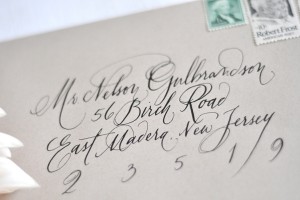 Robert Frost
Mr. Nelson Gulbrandson
56 Birch Road
East Madera, New Jersey
2 3 5 1 9